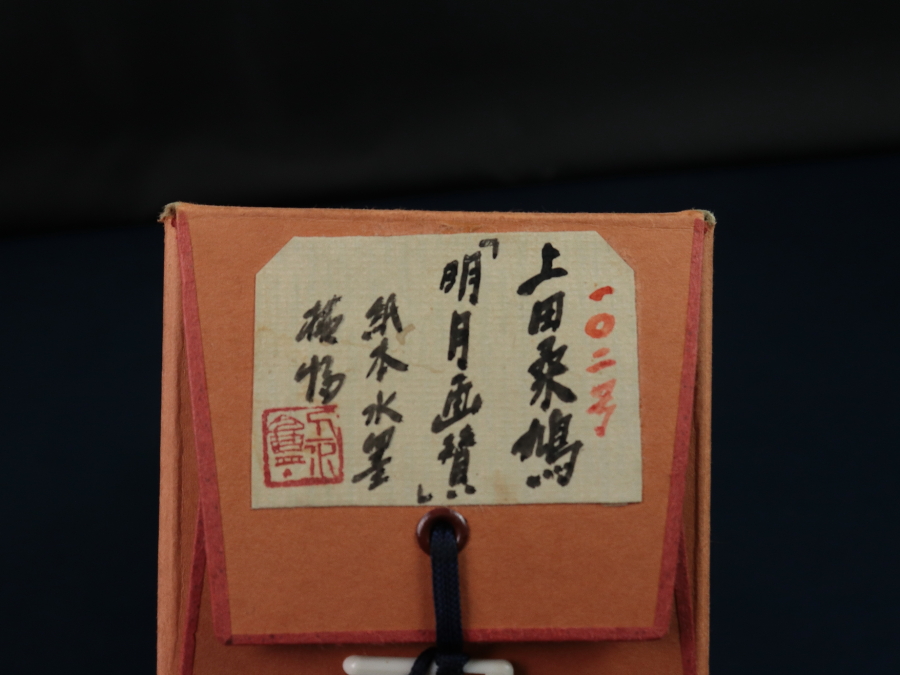 一〇二号
上田桑鳩
「明月画賛」
紙本水墨
横幅